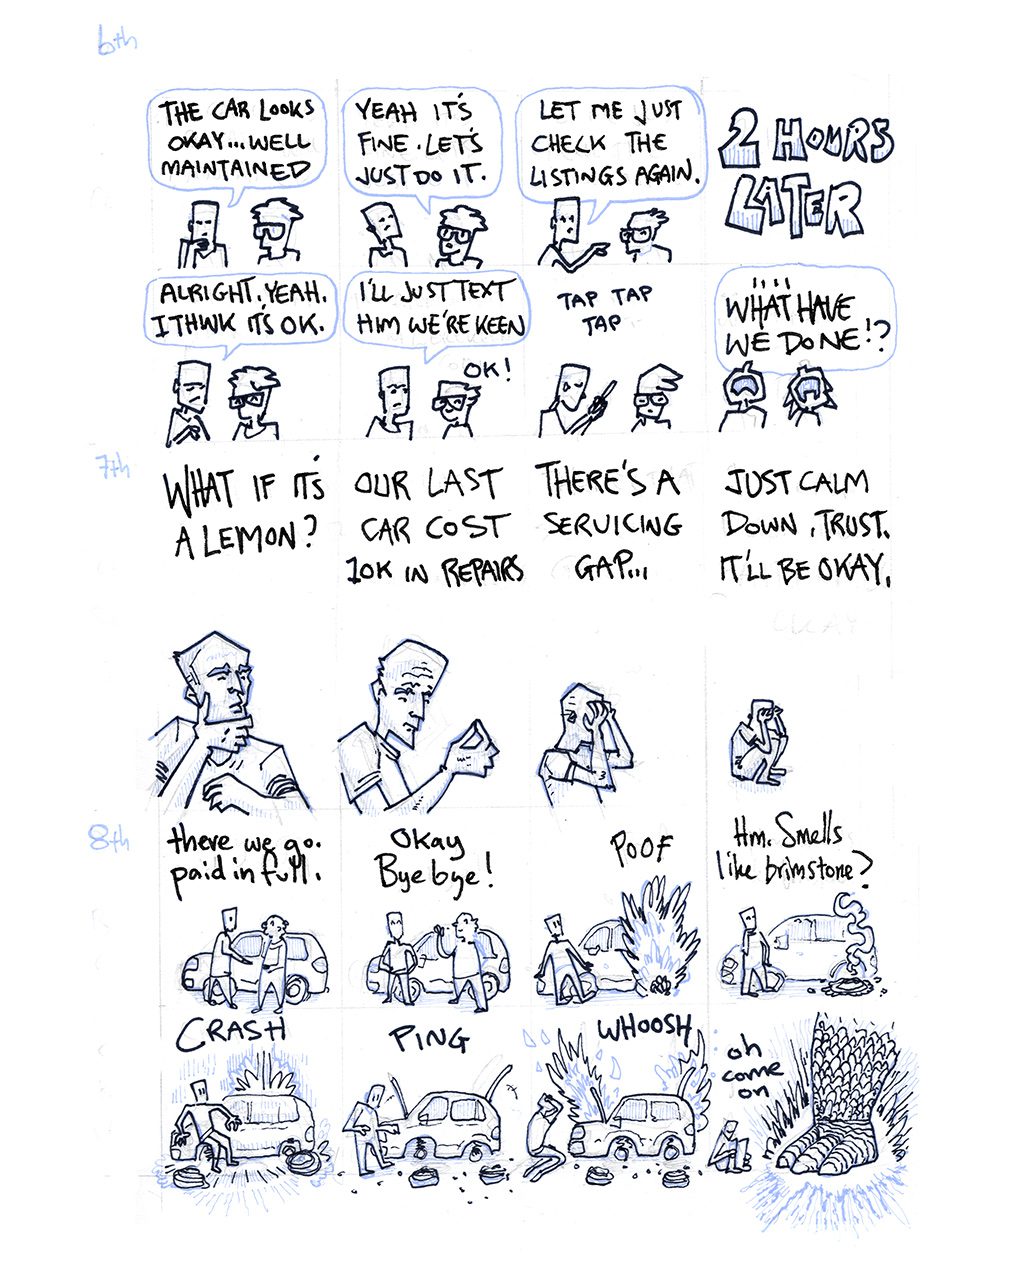 6th
THE CAR LOOKS
OKAY...WELL
MAINTAINED
YEAH IT'S
FINE. LET'S
JUST DO IT.
LET ME JUST
CHECK THE
LISTINGS AGAIN.
2 HOURS
LATER
ALRIGHT. YEAH.
I THINK IT'S OK.
I'LL JUST TEXT
HIM WE'RE KEEN
OK!
TAP TAP
TAP
WHAT HAVE
WE DONE!?
7th
WHAT IF IT'S
A LEMON?
OUR LAST
CAR COST
10K IN REPAIRS
THERE'S A
SERVICING
GAP...
JUST CALM
DOWN, TRUST.
IT'LL BE OKAY.
OKAY
8th
there we go.
paid in full.
Okay
Bye bye!
POOF
Hm. Smells
like brimstone?
CRASH
PING
WHOOSH
oh
come
on